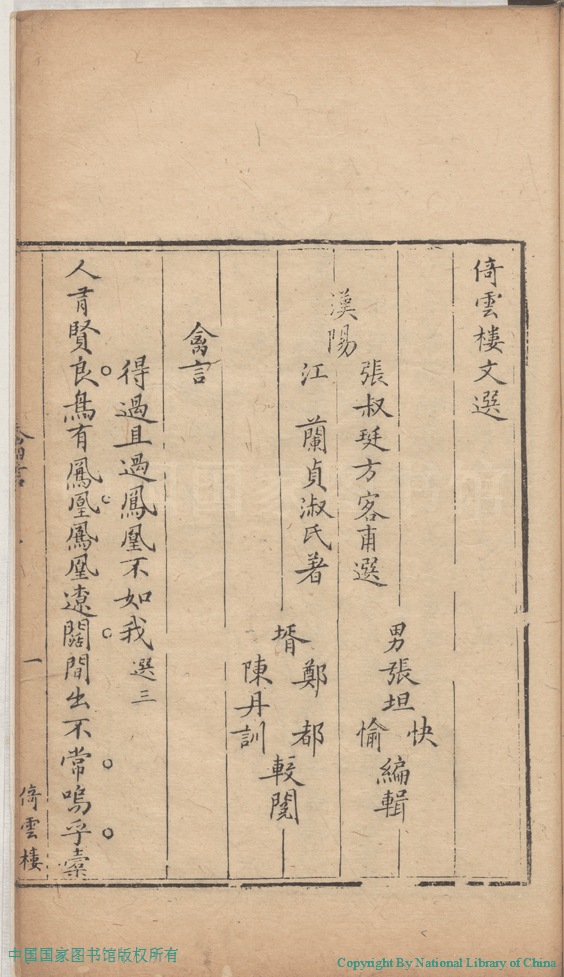 倚雲樓文選
漢陽
張叔珽方客甫選
江蘭貞淑氏著
男張坦
快
愉
編輯
壻
鄭都
陳丹訓
較閱
禽言
得過且過鳳凰不如我 選三
人有賢良鳥有鳳凰鳳凰遼闊間出不常嗚乎橐
禽言
一
倚雲樓
中国国家图书馆版权所有
Copyright By National Library of China